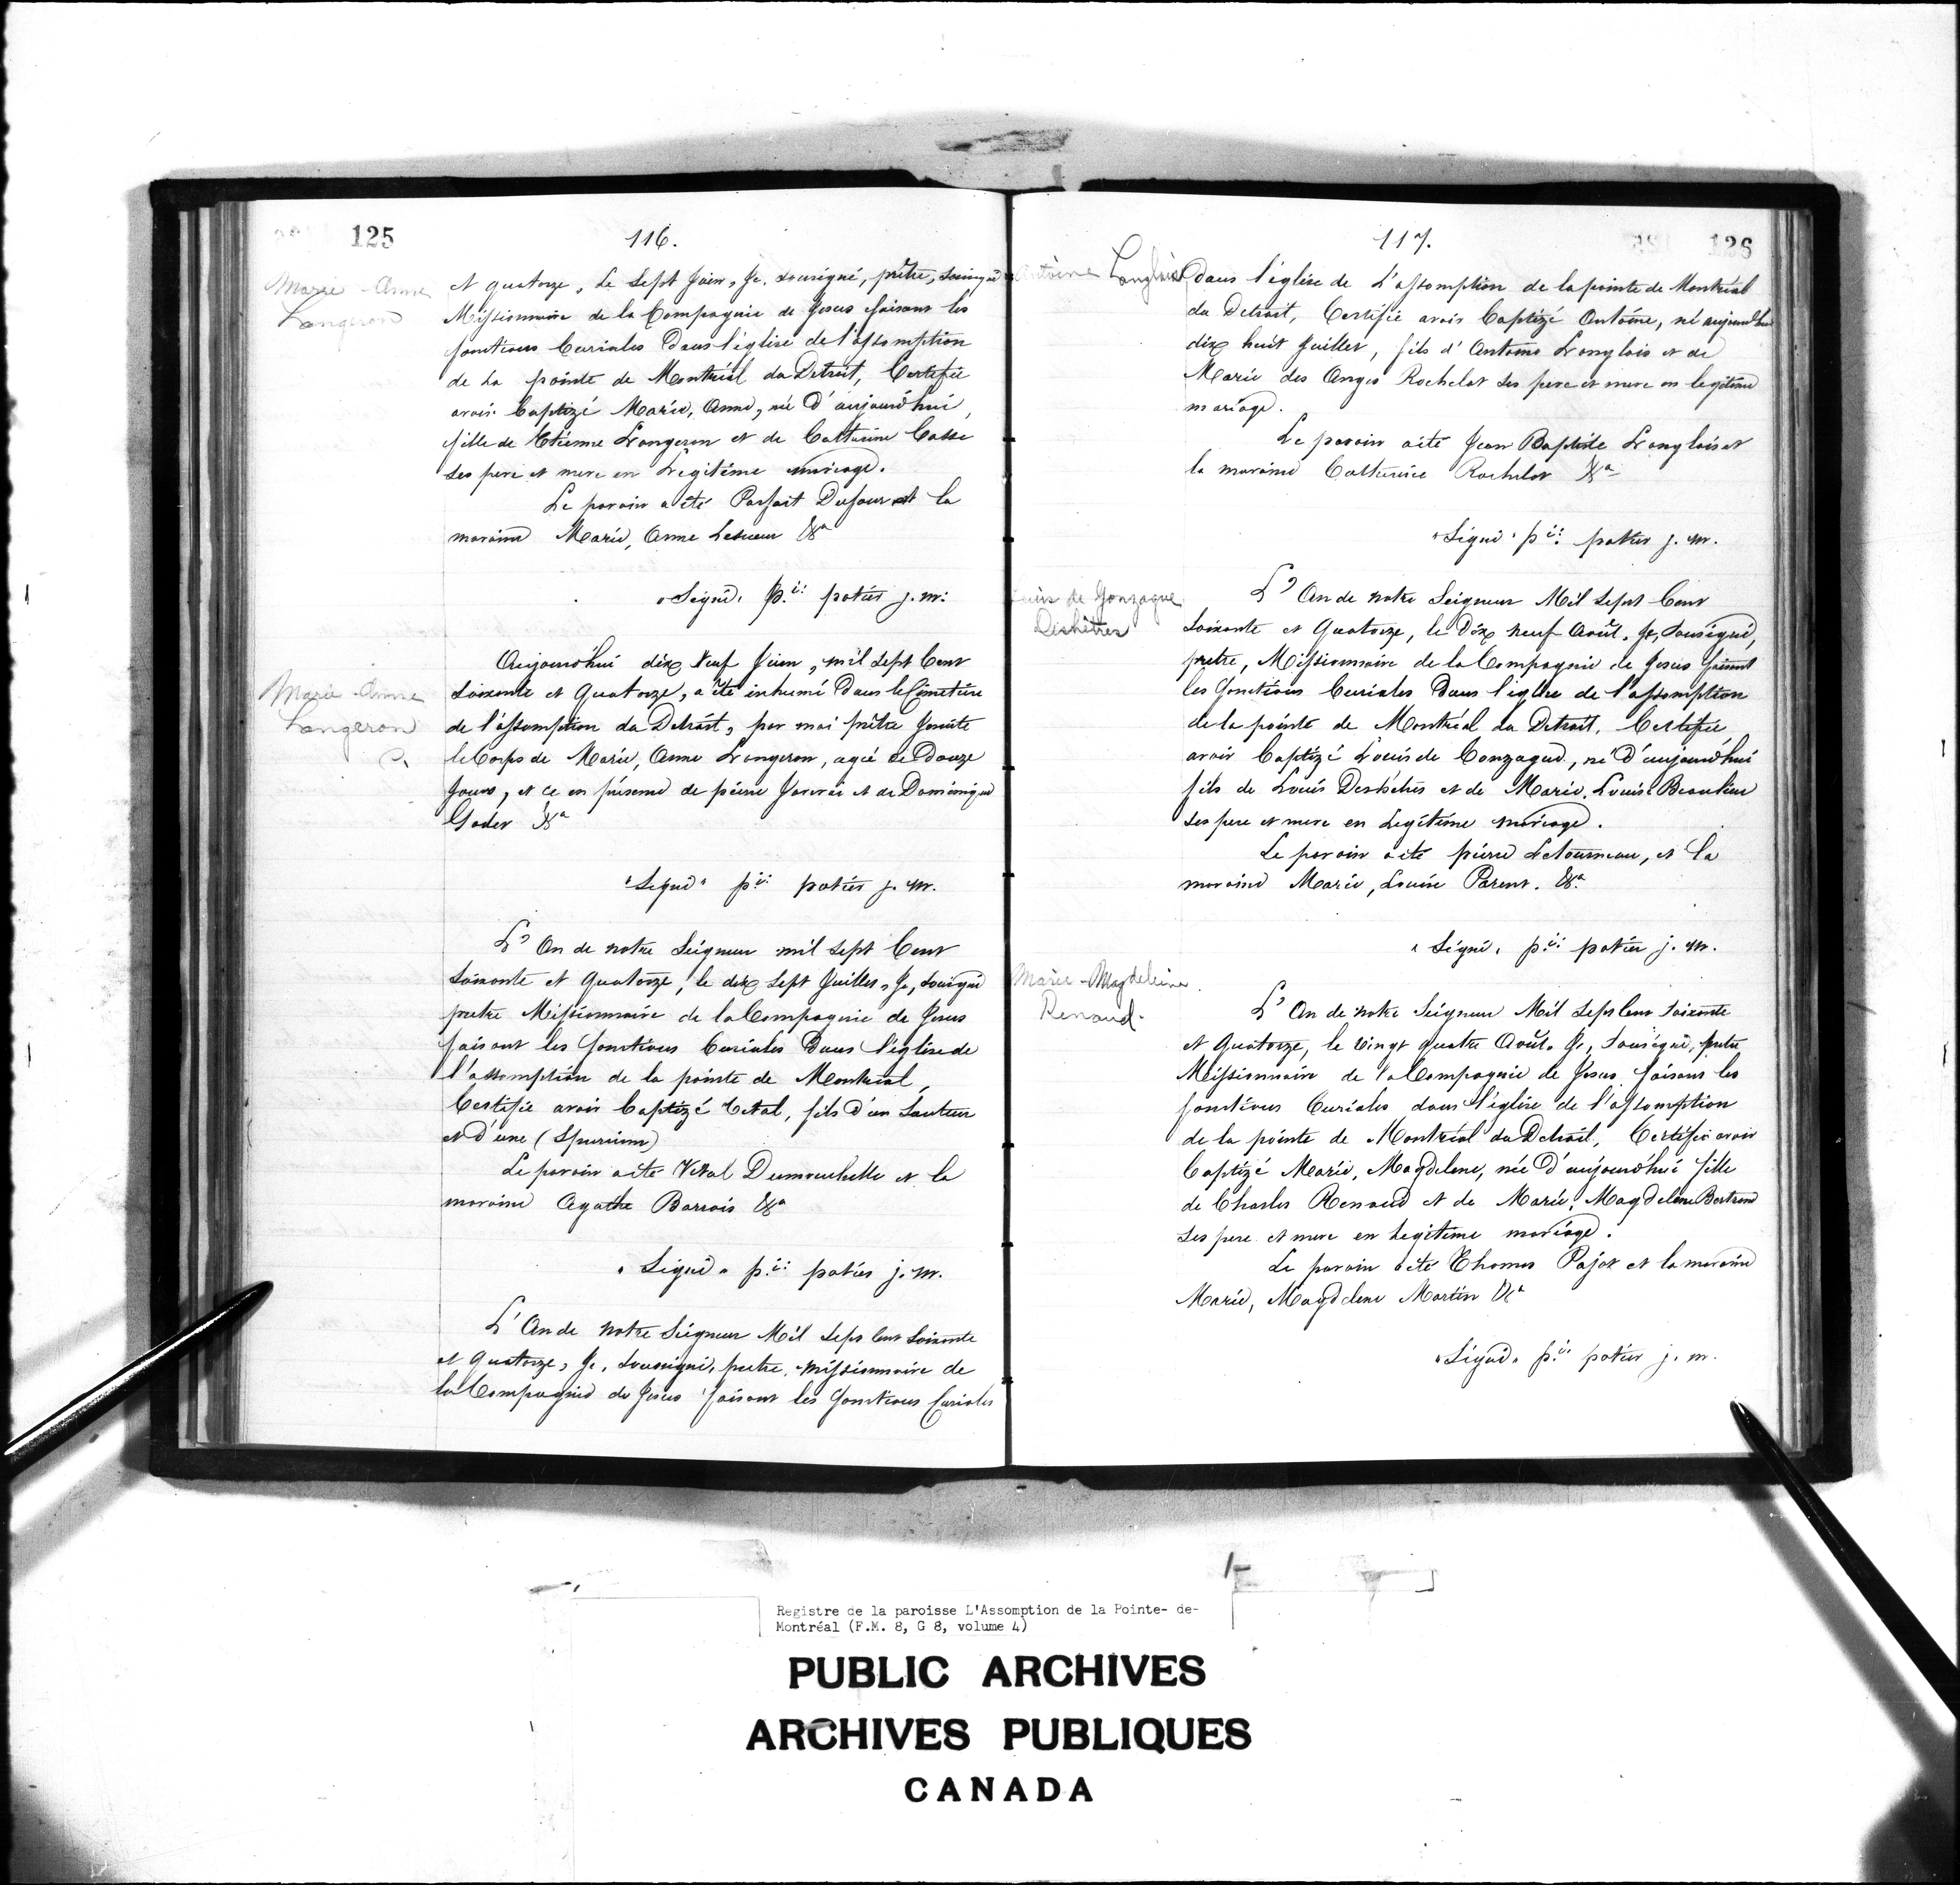 125
116.
Marie-Anne
Langeron
et quatorze, le Sept Juin, Je, sousigné, prêtre,
Missionnaire de la Compagnie de Jesus faisant les
fonctions Curiales dans l'église de l'assomption
de la pointe de Montréal du Detroit, Certifie
avoir baptizé Marie, Anne, née d'aujourdhui,
fille de Etienne Langeron et de Catherine Casse
ses pere et mere en Légitime mariage.
Le parain a été Parfait Dufour et la
maraine Marie, Anne Lesueur &a
"Signé" p.re potier j. m:
Marie-Anne
Langeron
Aujourd'hui dix Neuf Juin, mil Sept Cent
soixante et Quatorze, a été inhumé dans le Cimetiere
de l'assomption du Detroit, par moi prêtre Jesuite
le Corps de Marie, Anne Langeron, agée de Douze
Jours, et ce en présence de pierre et de Dominique
Godet &a
"Signé" p.re potier j. m.
L'An de notre Seigneur mil Sept Cent
soixante et Quatorze, le dix Sept Juillet, Je, sousigné
pretre Missionnaire de la Compagnie de Jesus
faisant les fonctions Curiales dans l'église de
l'assomption de la pointe de Montréal,
Certifie avoir baptizé Vital, fils d'un Sauteur
et d'une (Spurium)
Le parain a été Vital Dumouchelle et la
maraine Agathe Barrois &a
"Signé" p.re potier j. m.
L'An de notre Seigneur Mil Sept Cent Soixante
et Quatorze, Je, soussigné, pretre, missionnaire de
la Compagnie de Jesus faisant les fonctions Curiales
126
117.
Antoine Langlois
dans l'église de L'assomption de la pointe de Montréal
du Detroit, Certifie avoir baptizé Antoine, né aujourdhui
dix huit Juillet, fils d'Antoine Langlois et de
Marie des Anges Rochelot ses pere et mere en legitime
mariage.
Le parain a été Jean Baptiste Langlois et
la maraine Catherine Rochelot &a
"Signé" p.re potier j. m.
Louis de Gonzague
Deshêtres
L'An de notre Seigneur Mil Sept Cent
Soixante et Quatorze, le Dix neuf Août, Je, Sousigné,
pretre, Missionnaire de la Compagnie de Jesus faisant
les fonctions Curiales dans l'église de l'assomption
de la pointe de Montréal du Detroit, Certifie
avoir baptizé Louis de Gonzague, né d'aujourd'hui
fils de Louis Deshêtres et de Marie, Louise Beaulieu
ses pere et mere en Legitime mariage.
Le parain a été pierre Letourneau, et la
maraine Marie, Louise Parent. &a
"Signé" p.re potier j. m.
Marie-Magdeleine
Renaud.
L'An de notre Seigneur Mil Sept Cent soixante
et Quatorze, le vingt quatre Août. Je, Sousigné, pretre
Missionnaire de la Compagnie de Jesus faisant les
fonctions Curiales dans l'église de l'assomption
de la pointe de Montréal du Detroit, Certifie avoir
baptizé Marie, Magdelene, née d'aujourd'hui fille
de Charles Renaud et de Marie, Magdelene Bertrand
ses pere et mere en legitime mariage.
Le parain a été Thomas Pajot et la maraine
Marie, Magdelene Martin &a
"Signé" p.re potier j. m.
Registre de la paroisse L'Assomption de la Pointe- de-
Montréal (F.M. 8, G 8, volume 4)
PUBLIC ARCHIVES
ARCHIVES PUBLIQUES
CANADA